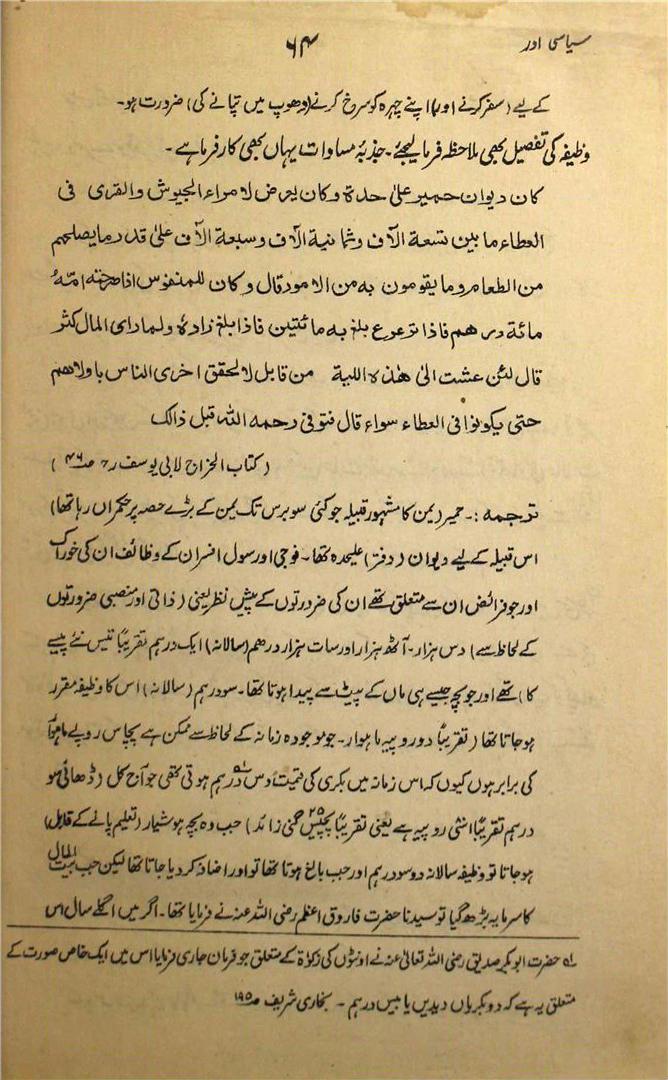 سیاسی اور
۶۴
کے لیے (سفر کرنے اور) اپنے چہرہ کو سرخ کرنے (دھوپ میں تپانے کی) ضرورت ہو۔
وظیفہ کی تفصیل بھی ملاحظہ فرما لیجئے۔ جذبۂ مساوات یہاں بھی کارفرما ہے۔
کان دیوان حمیر علیٰ حدة وکان یعرض لامراء الجیوش والقری فی
العطاء ما بین تسعة الآف وثمانیة الآف وسبعة الآف علیٰ قدر ما یصلحهم
من الطعام وما یقومون به من الامور قال وکان للمنفوس اذا طرحته امّهٗ
مائة درهم فاذا ترعرع بلغ به مائتین فاذا بلغ زادهٗ ولما رای المال کثر
قال لئن عشت الیٰ هٰذه اللیة من قابل لالحقق اخری الناس باولاهم
حتی یکونوا فی العطاء سواء قال فتوفی رحمه الله قبل ذالک
(کتاب الخراج لابی یوسف رح ص۴۶)
ترجمہ:۔ حمیر (یمن کا مشہور قبیلہ جو کئی سو برس تک یمن کے بڑے حصہ پر حکمراں رہا تھا)
اس قبیلہ کے لیے دیوان (دفتر) علیحدہ تھا۔ فوجی اور سول افسران کے وظائف ان کی خوراک
اور جو فرائض ان سے متعلق تھے ان کی ضرورتوں کے پیش نظر یعنی (ذاتی اور منصبی ضرورتوں
کے لحاظ سے) دس ہزار۔ آٹھ ہزار اور سات ہزار درھم (سالانہ) ایک درہم تقریباً تیس نئے پیسے
کا) تھے اور جو بچہ جیسے ہی ماں کے پیٹ سے پیدا ہوتا تھا۔ سو درہم (سالانہ) اس کا وظیفہ مقرر
ہو جاتا تھا (تقریباً دو روپیہ ماہوار۔ جو موجودہ زمانہ کے لحاظ سے ممکن ہے پچاس روپے ماہوار
کی برابر ہوں کیوں کہ اس زمانہ میں بکری کی قیمت دس درہم ہوتی تھی جو آج کل (ڈھائی سو
درہم تقریباً اسّی روپیہ ہے یعنی تقریباً پچیس ۲۵ گنی زائد) جب وہ بچہ ہوشیار (تعلیم پانے کے قابل)
ہو جاتا تو وظیفہ سالانہ دو سو درہم اور جب بالغ ہوتا تھا تو اور اضافہ کر دیا جاتا تھا لیکن جب بیت المال
کا سرمایہ بڑھ گیا تو سیدنا حضرت فاروق اعظم رضی اللہ عنہ نے فرمایا تھا۔ اگر میں اگلے سال اس
۱؎ حضرت ابو بکر صدیق رضی اللہ تعالیٰ عنہ نے اونٹوں کی زکوٰۃ کے متعلق جو فرمان جاری فرمایا اس میں ایک خاص صورت کے
متعلق یہ ہے کہ دو بکریاں دیدیں یا بیس درہم۔ بخاری شریف ص۱۹۵